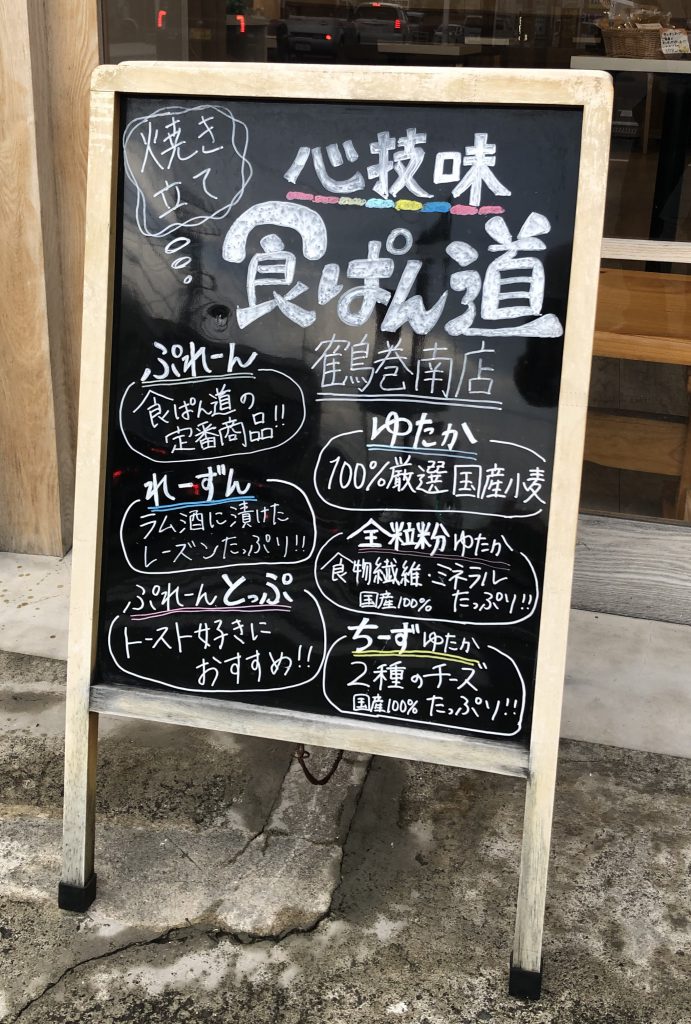 焼き
立て
心技味
食ぱん道
鶴巻南店
ぷれーん
食ぱん道の
定番商品!!
れーずん
ラム酒に漬けた
レーズンたっぷり!!
ぷれーんとっぷ
トースト好きに
おすすめ!!
ゆたか
100%厳選国産小麦
全粒粉ゆたか
食物繊維・ミネラル
国産100% たっぷり!!
ちーずゆたか
2種のチーズ
国産100% たっぷり!!